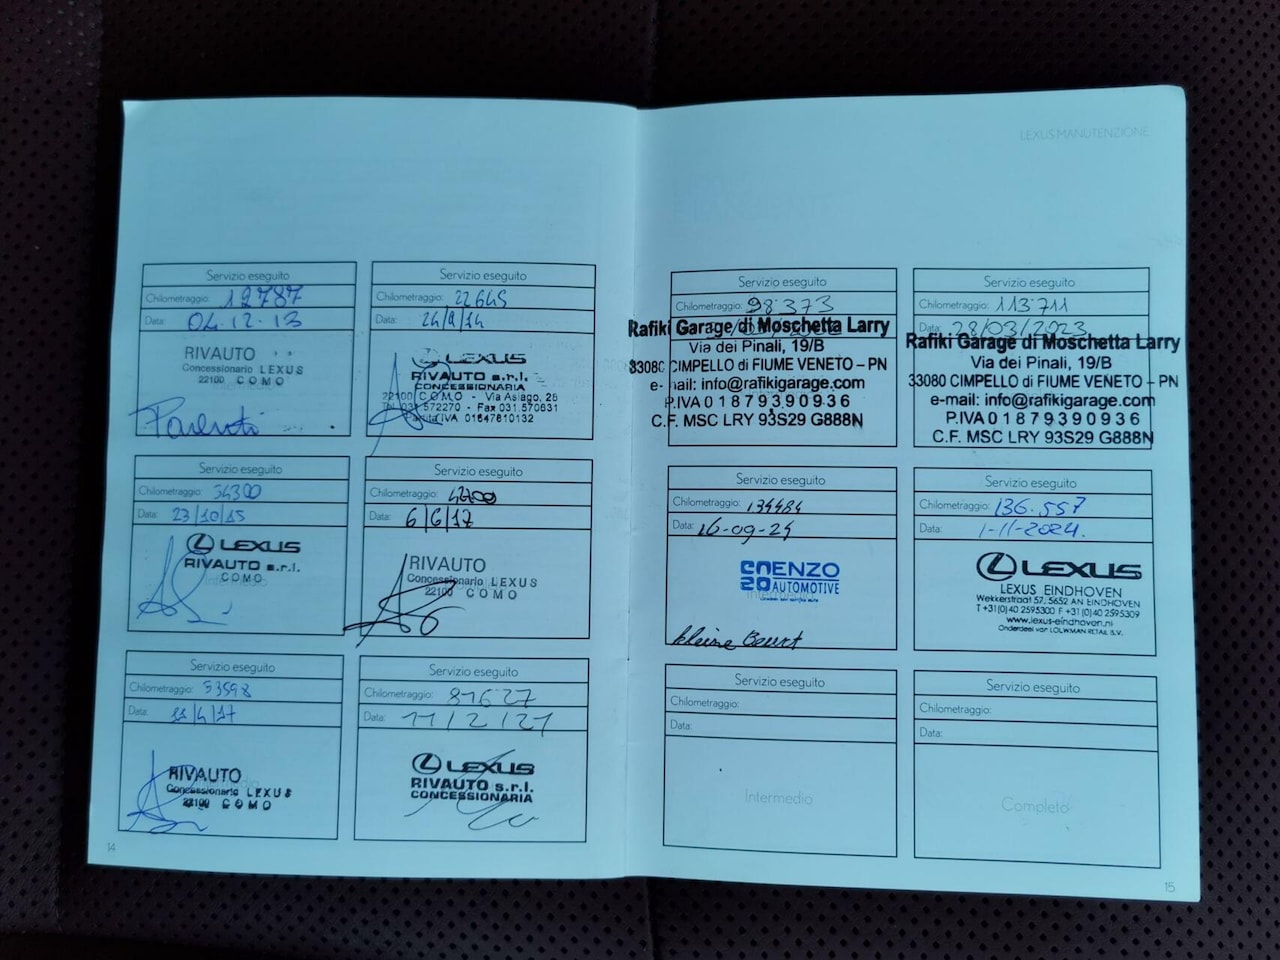 LEXUS MANUTENZIONE
Servizio eseguito
Chilometraggio: 12787
Data: 04.12.13
RIVAUTO
Concessionario LEXUS
22100 COMO
Parenti
Servizio eseguito
Chilometraggio: 22645
Data: 24/9/14
LEXUS
RIVAUTO s.r.l.
CONCESSIONARIA
22100 COMO - Via Asiago, 28
Tel. 031.572270 - Fax 031.570631
Partita IVA 01647610132
Servizio eseguito
Chilometraggio: 34300
Data: 23/10/15
LEXUS
RIVAUTO s.r.l.
COMO
Servizio eseguito
Chilometraggio:
Data: 6/6/17
RIVAUTO
Concessionario LEXUS
22100 COMO
Servizio eseguito
Chilometraggio: 53598
Data:
RIVAUTO
Concessionario LEXUS
22100 COMO
Servizio eseguito
Chilometraggio: 81627
Data: 11/2/21
LEXUS
RIVAUTO s.r.l.
CONCESSIONARIA
14
Servizio eseguito
Chilometraggio: 98373
Rafiki Garage di Moschetta Larry
Via dei Pinali, 19/B
33080 CIMPELLO di FIUME VENETO – PN
e-mail: info@rafikigarage.com
P.IVA 01879390936
C.F. MSC LRY 93S29 G888N
Servizio eseguito
Chilometraggio: 113711
Data: 28/03/2023
Rafiki Garage di Moschetta Larry
Via dei Pinali, 19/B
33080 CIMPELLO di FIUME VENETO – PN
e-mail: info@rafikigarage.com
P.IVA 01879390936
C.F. MSC LRY 93S29 G888N
Servizio eseguito
Chilometraggio: 134484
Data: 16-09-24
ENZO
AUTOMOTIVE
kleine Beurt
Servizio eseguito
Chilometraggio: 136.557
Data: 1-11-2024.
LEXUS
LEXUS EINDHOVEN
Wekkerstraat 57, 5652 AN EINDHOVEN
T +31(0)40 2595300 F +31(0)40 2595309
www.lexus-eindhoven.nl
Onderdeel van LOUWMAN RETAIL B.V.
Servizio eseguito
Chilometraggio:
Data:
Intermedio
Servizio eseguito
Chilometraggio:
Data:
Completo
15